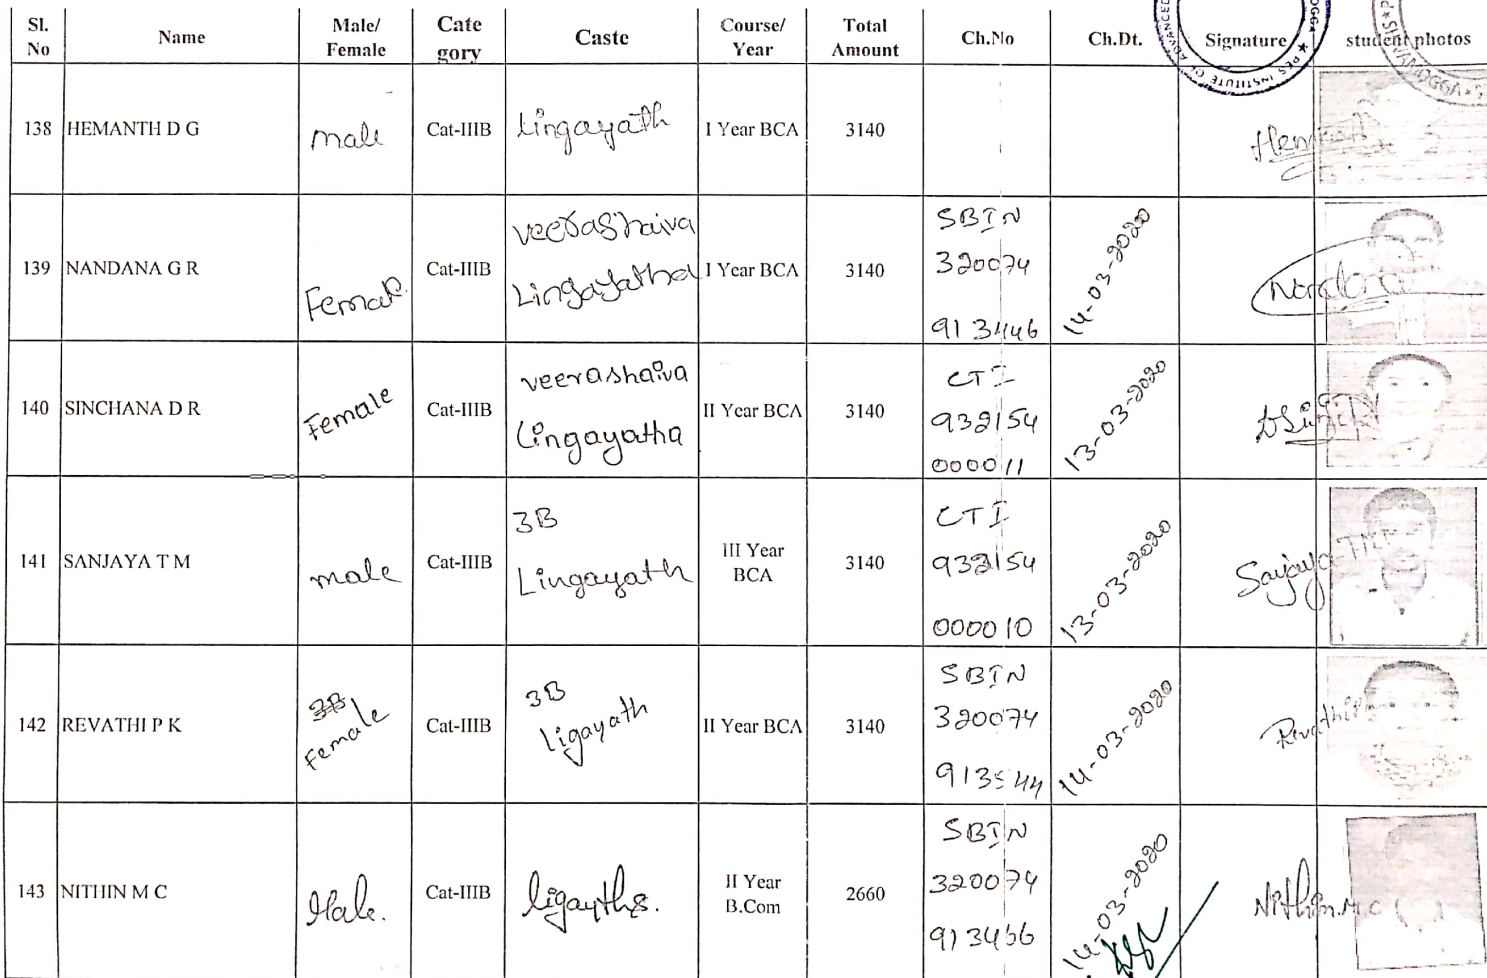 Sl. No Name Male/ Female Cate gory Caste Course/ Year Total Amount Ch.No Ch.Dt. Signature student photos
PES INSTITUTE OF ADVANCED
SHIVAMOGGA
138 HEMANTH D G male Cat-IIIB Lingayath I Year BCA 3140
139 NANDANA G R Female Cat-IIIB veerashaiva Lingayatha I Year BCA 3140 SBIN 320074 913446 14-03-2020 Nandana
140 SINCHANA D R Female Cat-IIIB veerashaiva Lingayatha II Year BCA 3140 CTI 932154 000011 13-03-2020
141 SANJAYA T M male Cat-IIIB 3B Lingayath III Year BCA 3140 CTI 932154 000010 13-03-2020 Sanjaya T M
142 REVATHI P K 3B Female Cat-IIIB 3B Ligayath II Year BCA 3140 SBIN 320074 913544 14-03-2020 Revathi P
143 NITHIN M C Male. Cat-IIIB ligayths. II Year B.Com 2660 SBIN 320074 913466 14-03-2020 Nithin.M.C